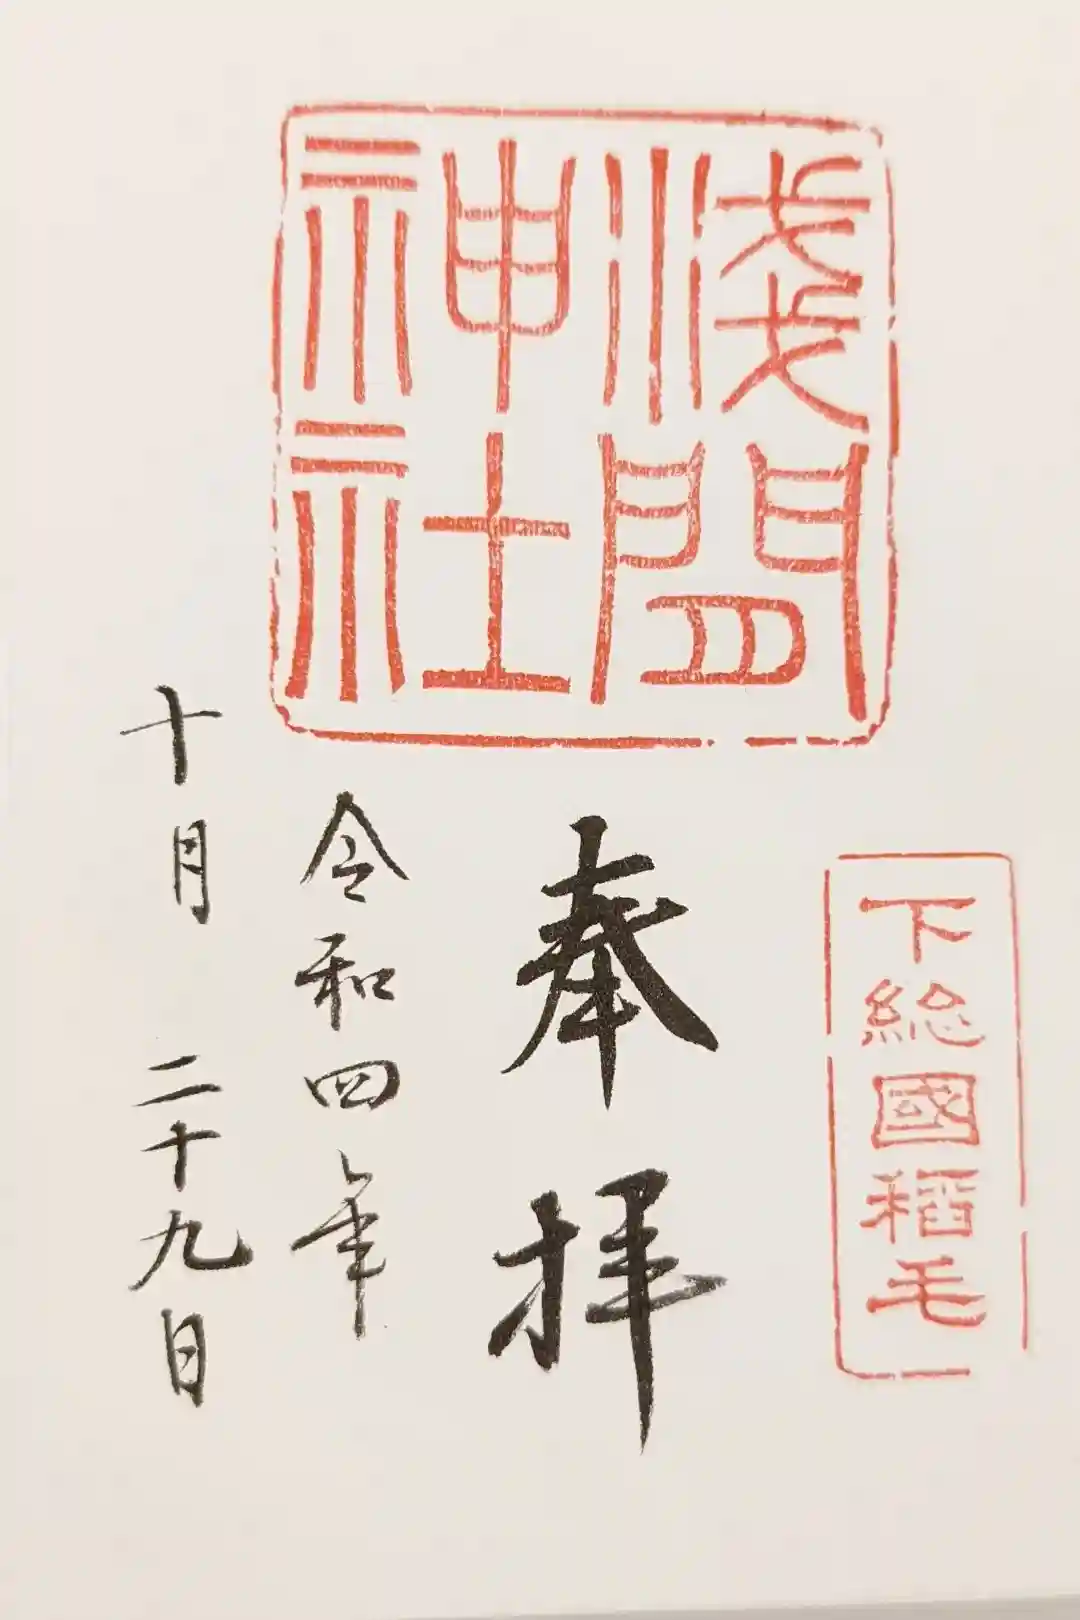 下総國稻毛
淺間
神社
奉拝
令和四年
十月二十九日